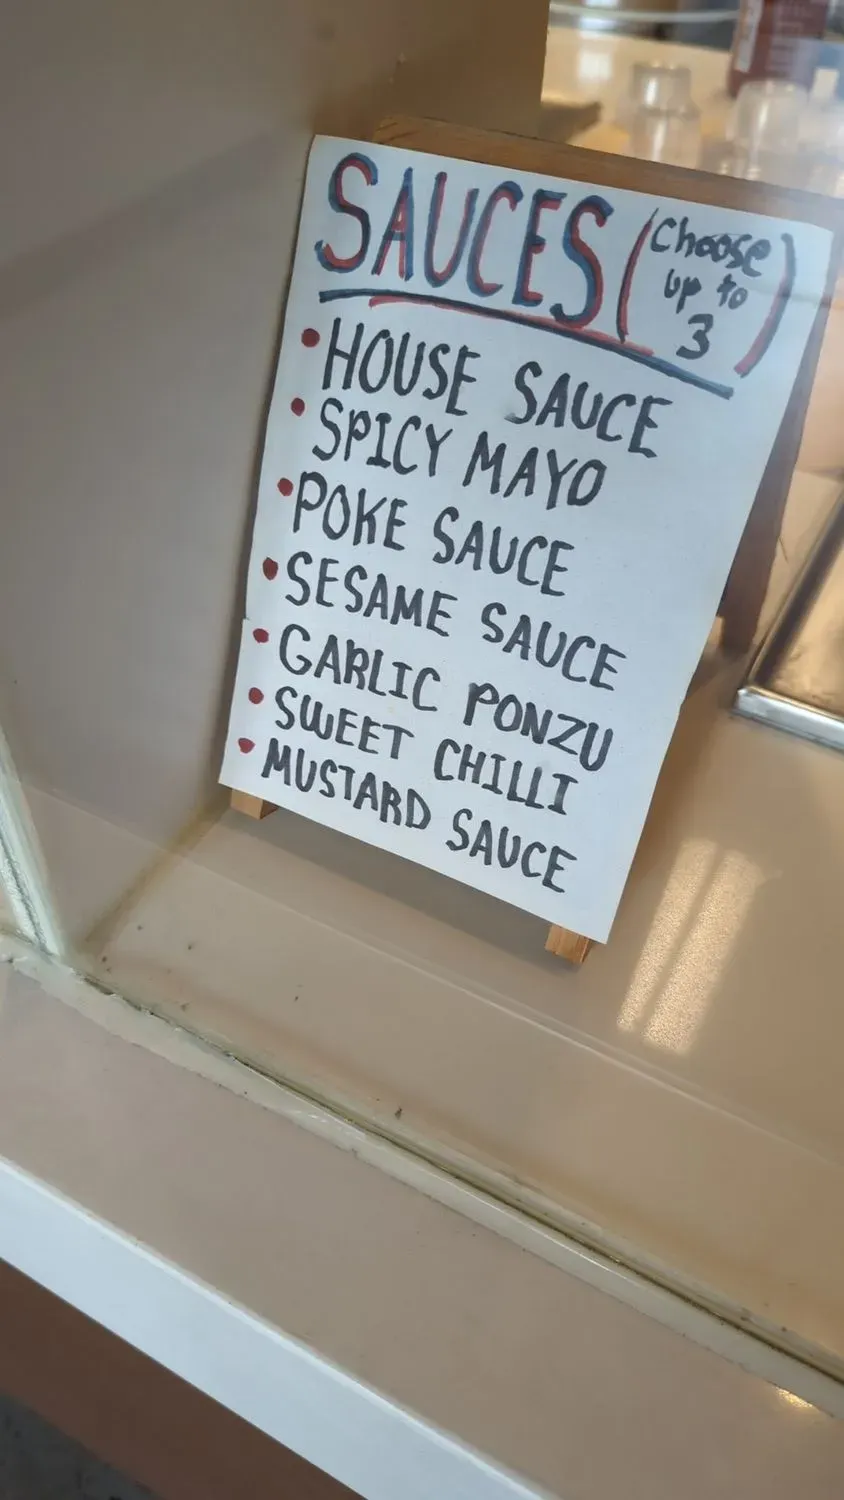 SAUCES (Choose
up to
3)
• HOUSE SAUCE
• SPICY MAYO
• POKE SAUCE
• SESAME SAUCE
• GARLIC PONZU
• SWEET CHILLI
• MUSTARD SAUCE